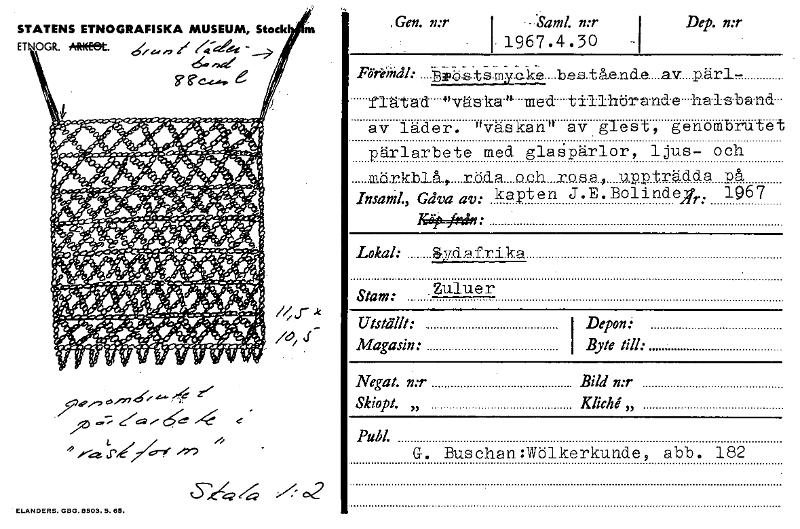 STATENS ETNOGRAFISKA MUSEUM, Stockholm
ETNOGR. ARKEOL.
brunt läder-
band
88cm l
11,5 x
10,5
genombrutet
pärlarbete i
"väskform".
Skala 1:2
ELANDERS. GBG. 8503. 5. 65.
Gen. n:r
Saml. n:r
Dep. n:r
1967.4.30
Föremål: Bröstsmycke bestående av pärl-
flätad "väska" med tillhörande halsband
av läder. "väskan" av glest, genombrutet
pärlarbete med glaspärlor, ljus- och
mörkblå, röda och rosa, uppträdda på
Insaml., Gåva av: kapten J.E.Bolinder År: 1967
Köp från:
Lokal: Sydafrika
Stam: Zuluer
Utställt: Depon:
Magasin: Byte till:
Negat. n:r Bild n:r
Skiopt. „ Kliché „
Publ.
G. Buschan:Wölkerkunde, abb. 182